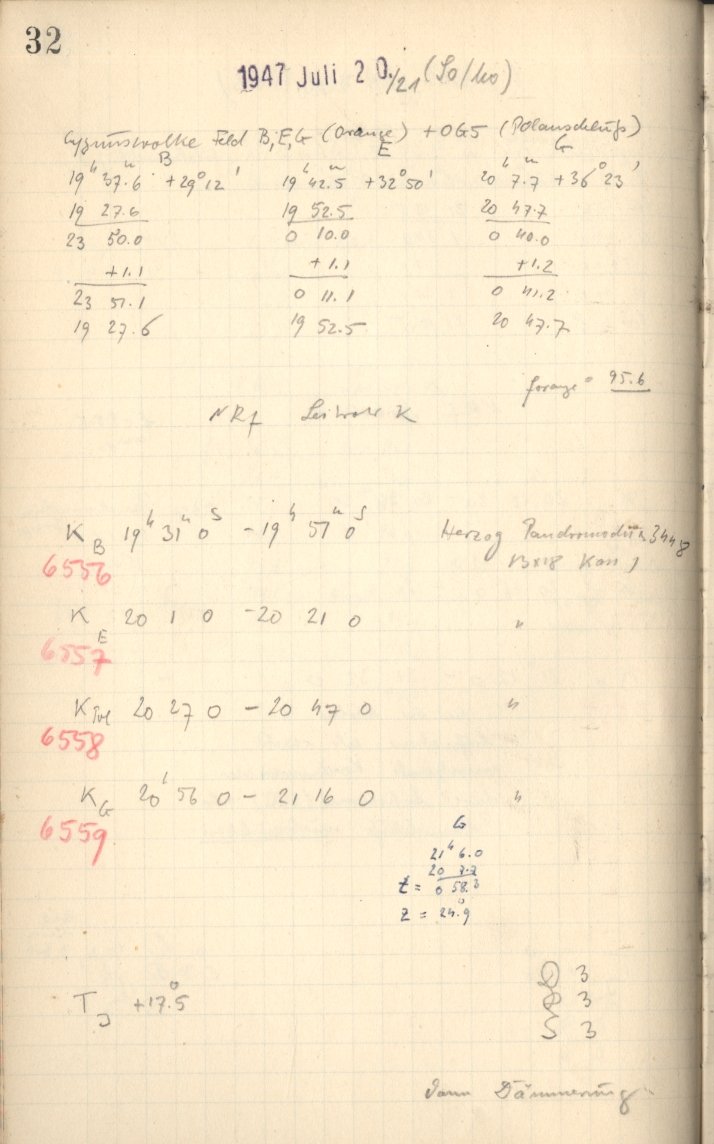 32
1947 Juli 20./21 (So/Mo)
Cygnuswolke Feld B, E, G (Orange) + OG5 (Polanschluß)
B E G
19h 37m.6 +29° 12' 19h 42m.5 +32° 50' 20h 7m.7 +36° 23'
19 27.6 19 52.5 20 47.7
23 50.0 0 10.0 0 40.0
+1.1 +1.1 +1.2
23 51.1 0 11.1 0 41.2
19 27.6 19 52.5 20 47.7
forange = 95.6
K
K B 19h 31m 0s - 19h 51m 0s Herzog 3448
6556
K E 20 1 0 - 20 21 0 "
6557
K Pol 20 27 0 - 20 47 0 "
6558
K G 20h 56 0 - 21 16 0 "
6559
G
21h 6.0
20 7.7
t = 0 58.3
z = 24°.9
3
TJ +17°.5 3
S 3
Dann Dämmerung